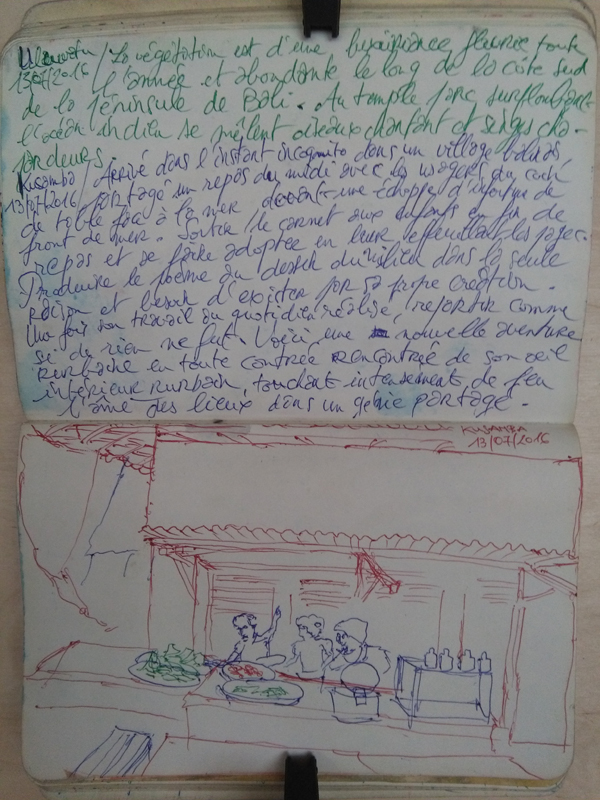 Uluwatu / La végétation est d'une luxuriance fleurie toute
13/07/2016 l'année et abondante le long de la côte sud
de la péninsule de Bali. Au temple parc surplombant
l'océan indien se mêlent oiseaux chantant et singes cha-
pardeurs.
Kusamba / Arrivé dans l'instant incognito dans un village balinais,
13/07/2016 partagé un repas du midi avec les usagers du coin
de table face à la mer devant une échoppe d'infortune de
front de mer. Sortir le carnet aux enfants en fin de
repas et se faire adopter en leur effeuillant les pages.
Produire le poème du dessin du milieu dans la seule
raison et besoin d'exister par sa propre création.
Une fois son travail du quotidien réalisé, repartir comme
si de rien ne fut. Voici une nouvelle aventure
Rurbaine en toute contrée rencontrée de son oeil
intérieur rurbain, touchant intensément de feu
l'âme des lieux dans un génie partagé.
KUSAMBA
13/07/2016